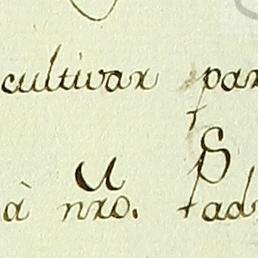 cultivar par
à nro. Pad